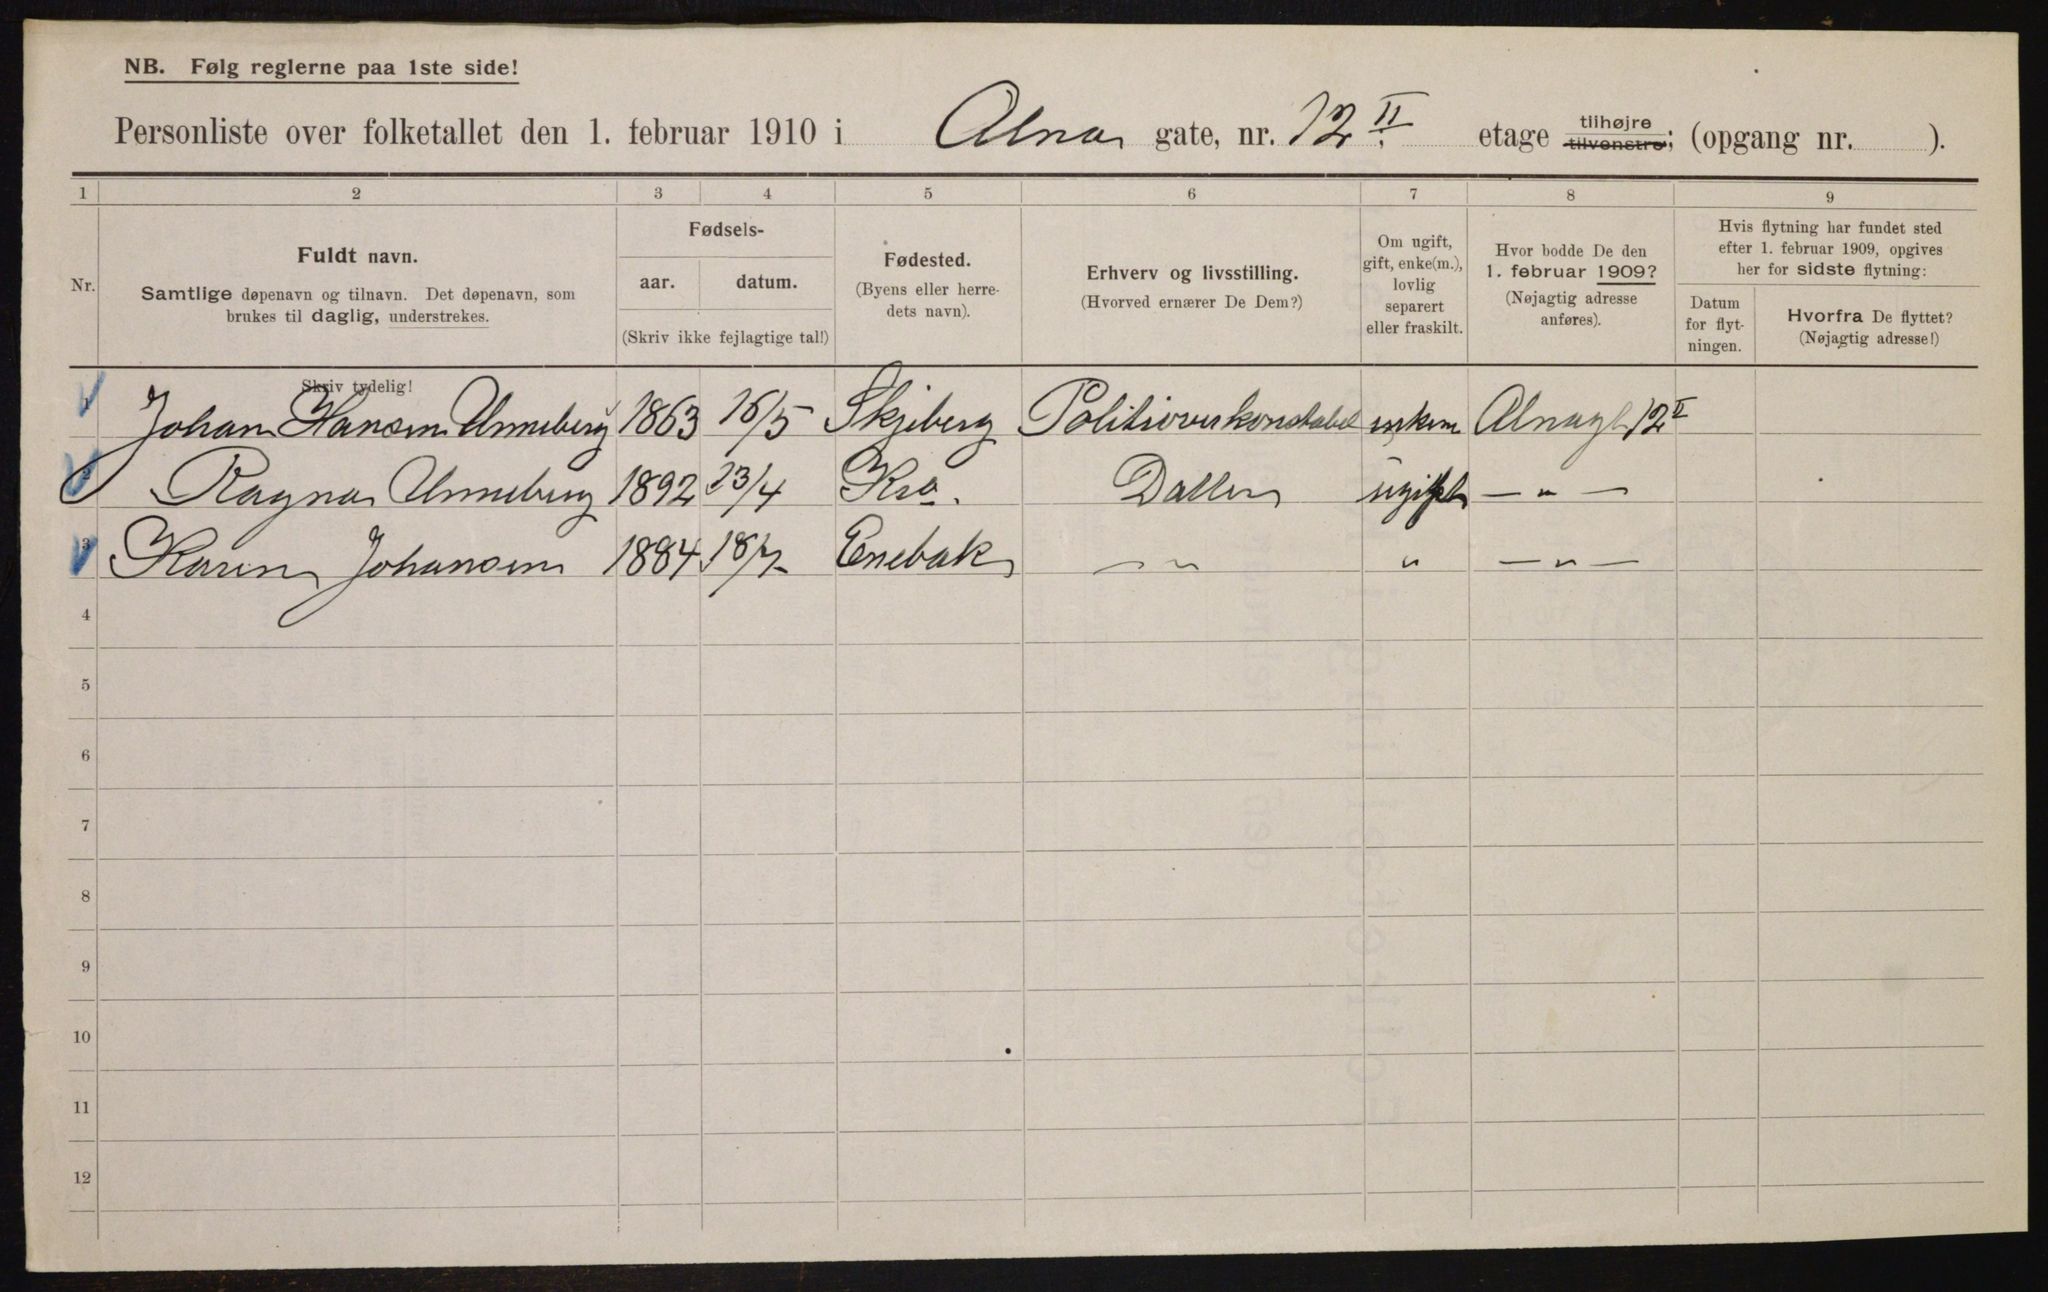 NB. Følg reglerne paa 1ste side!
Personliste over folketallet den 1. februar 1910 i Alna gate, nr. 12 II. etage tilhøjre tilvenstre; (opgang nr. ).
1 2 3 4 5 6 7 8 9
Nr.
Fuldt navn.
Samtlige døpenavn og tilnavn. Det døpenavn, som
brukes til daglig, understrekes.
Fødsels-
aar. datum.
(Skriv ikke fejlagtige tal!)
Fødested.
(Byens eller herre-
dets navn).
Erhverv og livsstilling.
(Hvorved ernærer De Dem?)
Om ugift,
gift, enke(m.),
lovlig
separert
eller fraskilt.
Hvor bodde De den
1. februar 1909?
(Nøjagtig adresse
anføres).
Hvis flytning har fundet sted
efter 1. februar 1909, opgives
her for sidste flytning:
Datum
for flyt-
ningen.
Hvorfra De flyttet?
(Nøjagtig adresse!)
Skriv tydelig!
1 Johan Hansen Unneberg 1863 16/5 Skjeberg Politioverkonstabel enkem Alnagt 12 II
2 Ragna Unneberg 1892 23/4 Kra. Datter ugift — " —
3 Karen Johansen 1884 18/7 Enebak — " " — " —
4
5
6
7
8
9
10
11
12